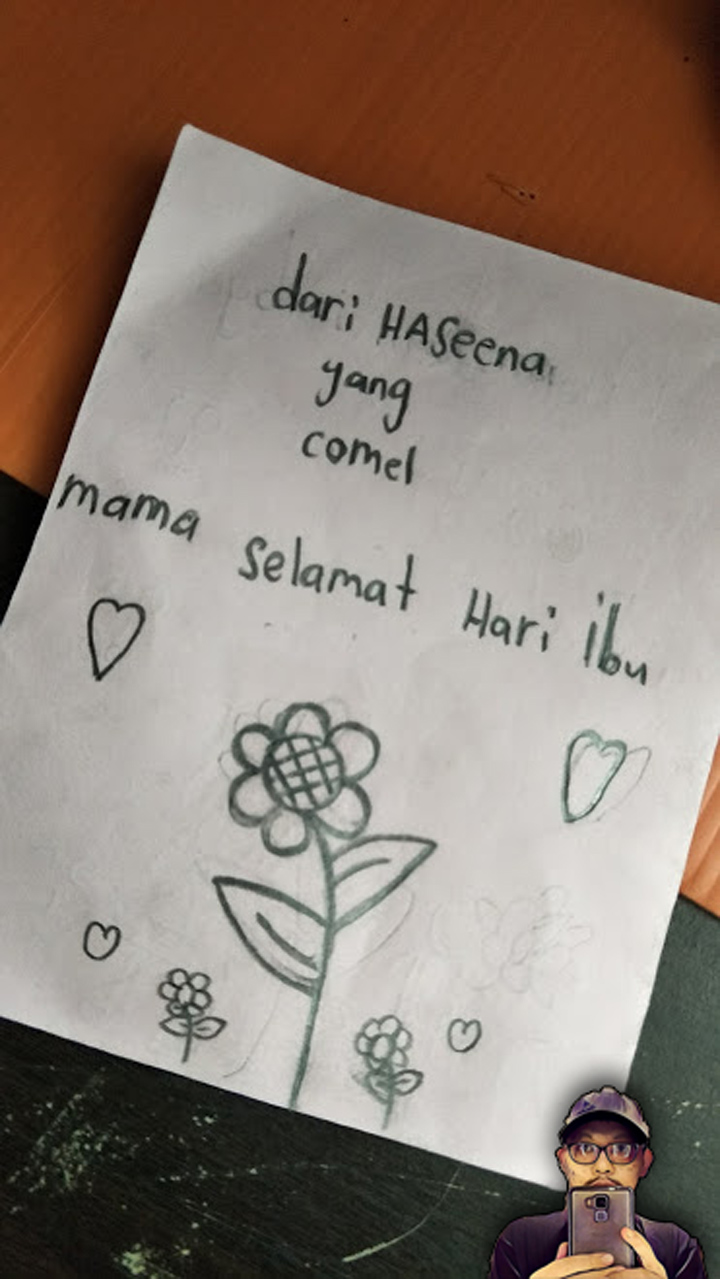 dari HASeena
yang
comel
mama selamat Hari ibu